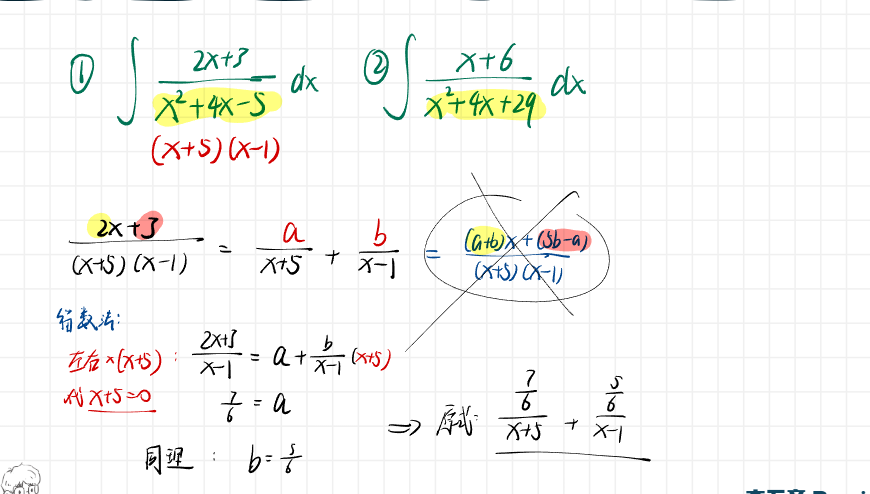 ① ∫ (2x+3)/(x²+4x-5) dx ② ∫ (x+6)/(x²+4x+29) dx
(x+5)(x-1)
(2x+3)/((x+5)(x-1)) = a/(x+5) + b/(x-1) = ((a+b)x+(5b-a))/((x+5)(x-1))
数法:
左右×(x+5): (2x+3)/(x-1) = a + b/(x-1) (x+5)
代 x+5=0 7/6 = a
⇒ 原式: (7/6)/(x+5) + (5/6)/(x-1)
同理: b = 5/6